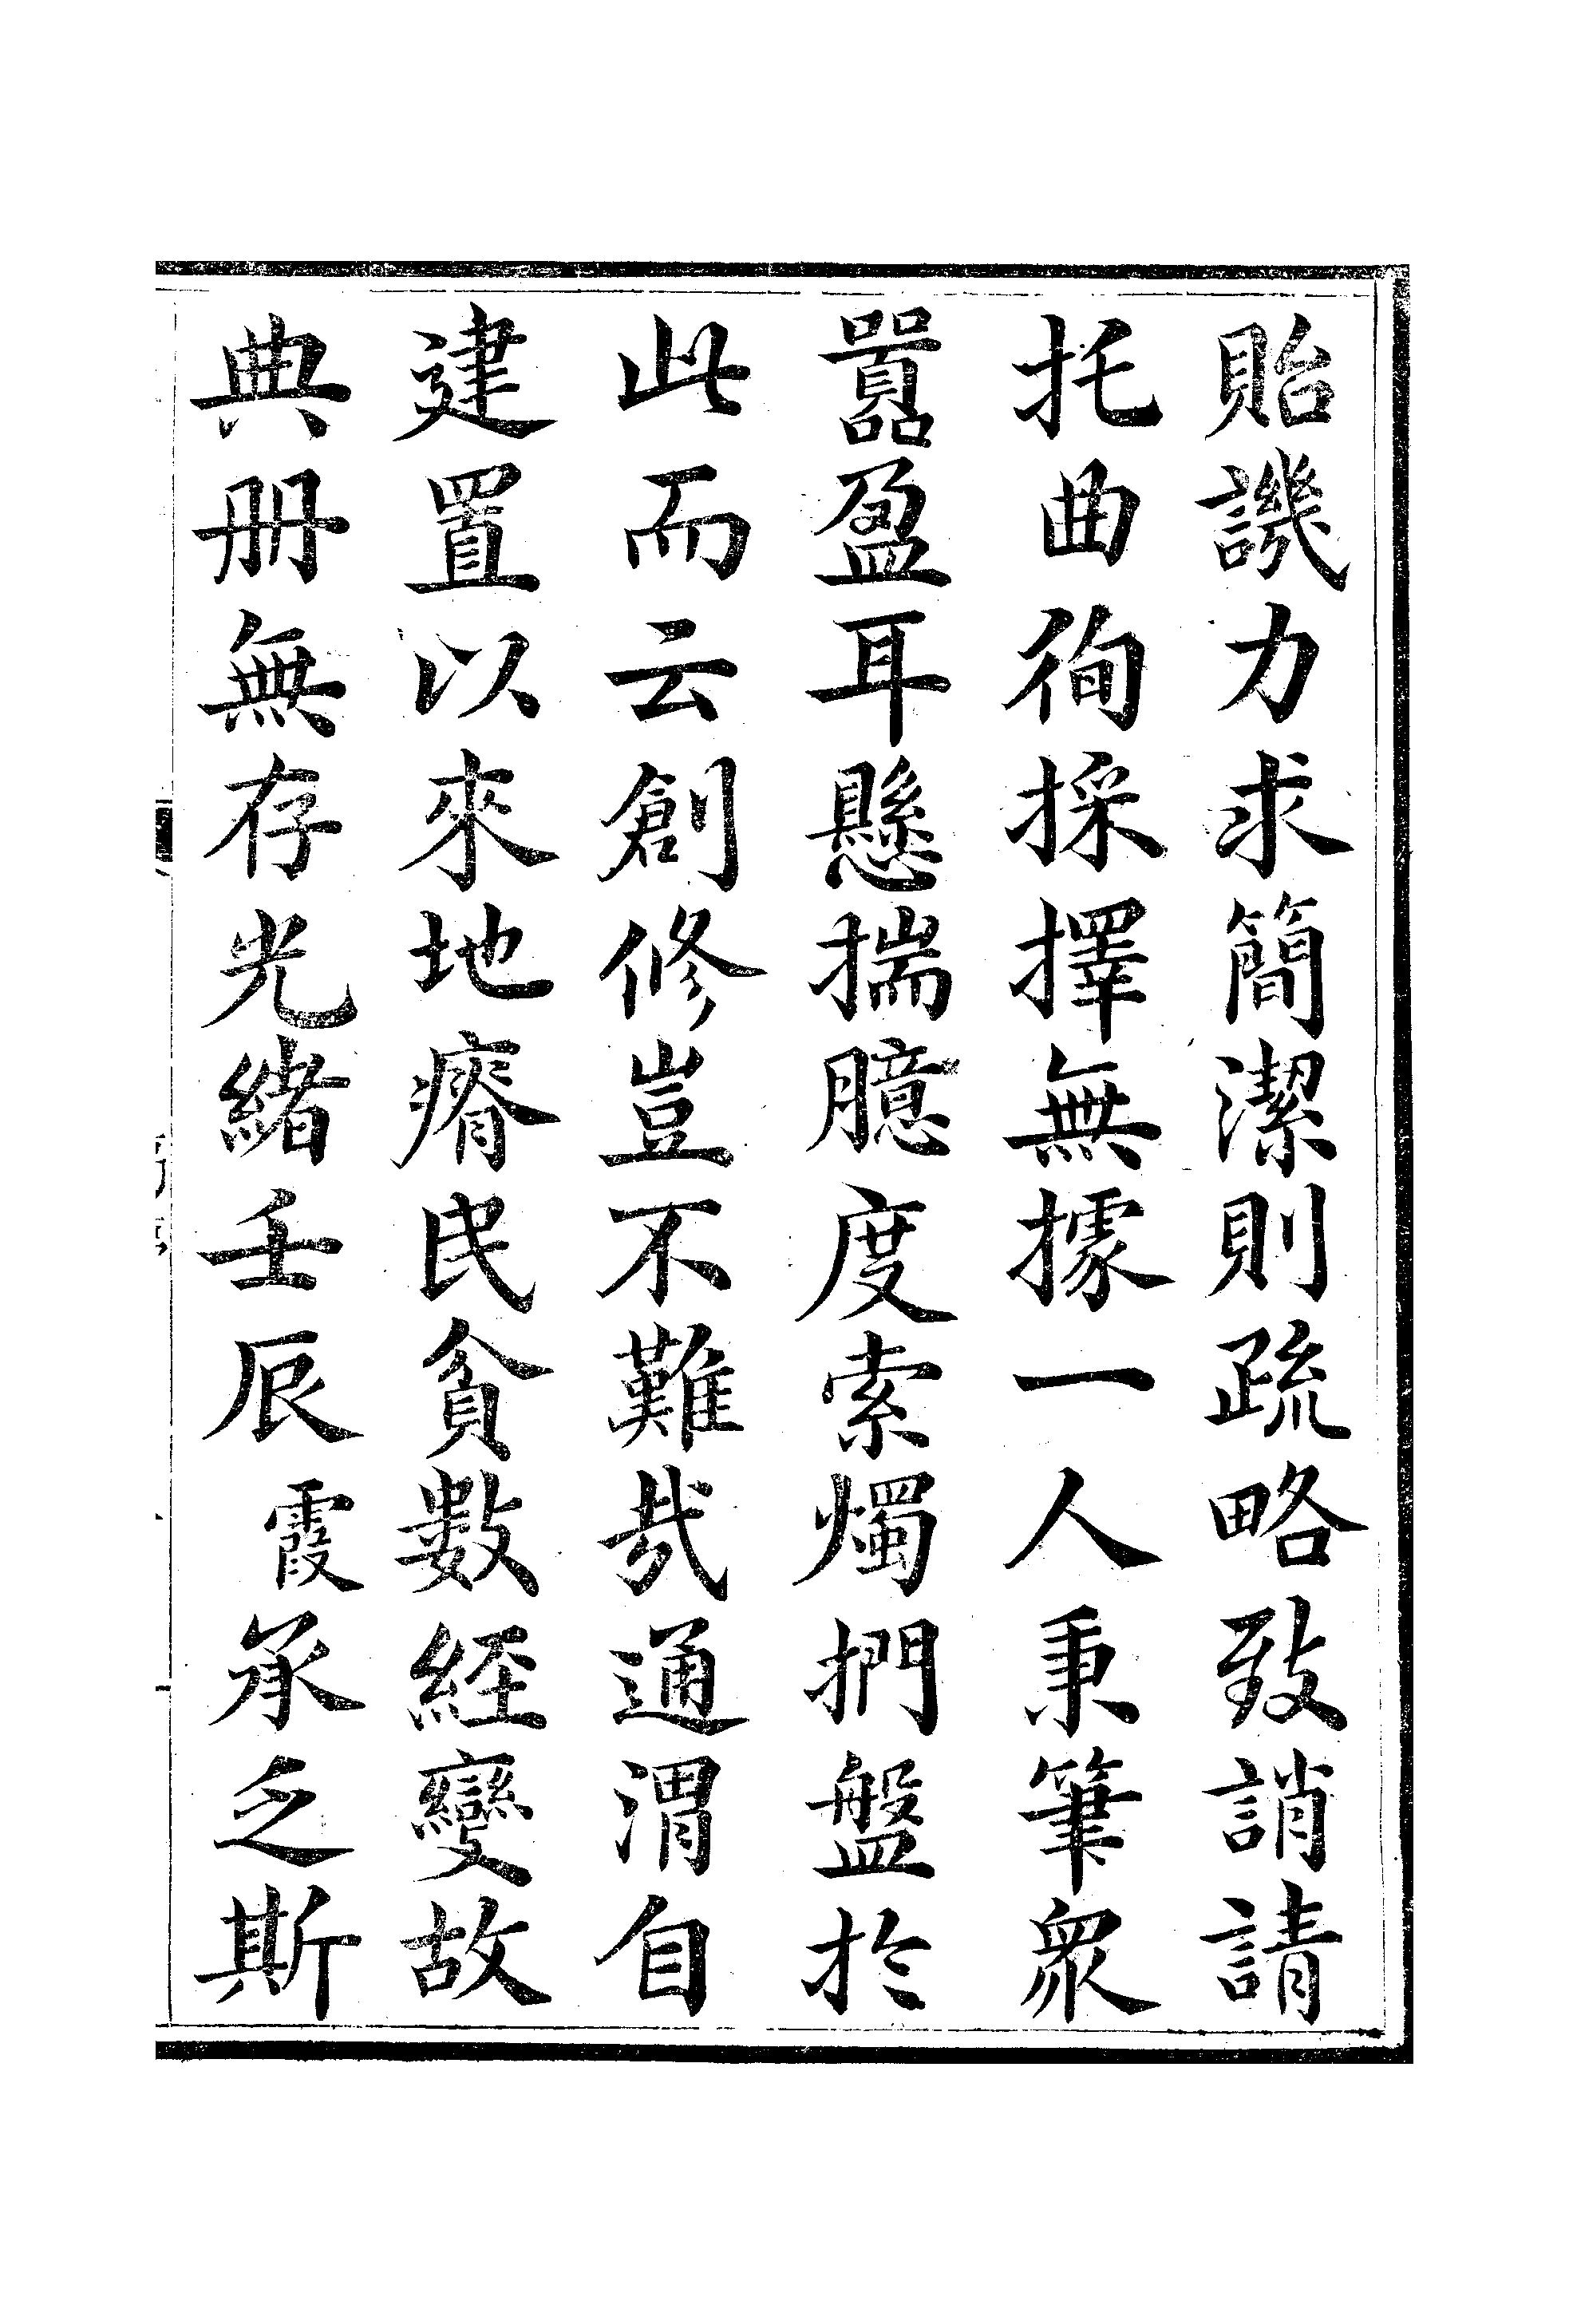 貽譏力求簡潔則疏略致誚請
托曲徇採擇無據一人秉筆衆
囂盈耳懸揣臆度索燭捫盤於
此而云創修豈不難哉通渭自
建置以來地瘠民貧數經變故
典册無存光緒壬辰霞承乏斯